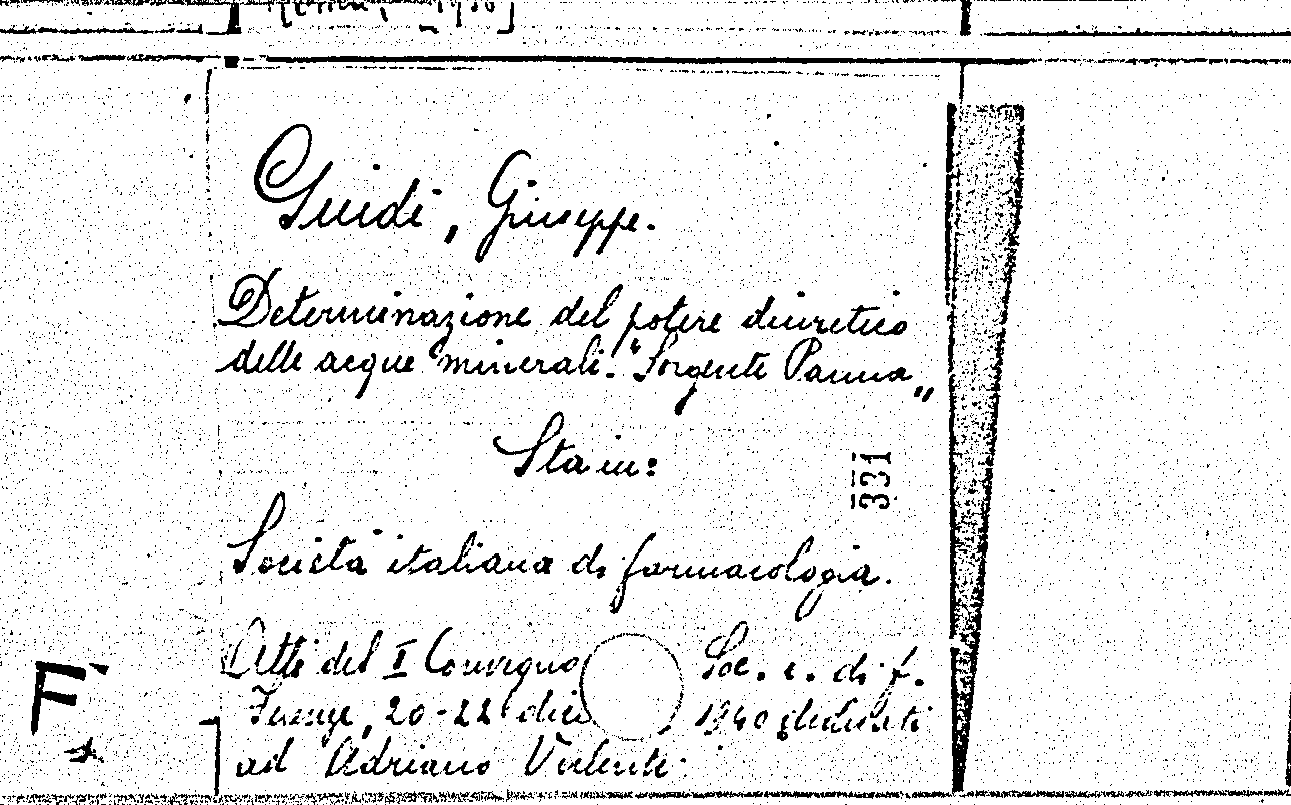 Guidi, Giuseppe.
Determinazione del potere diuretico
delle acque minerali. "Sorgente Panna„
Sta in:
331
Società italiana di farmacologia.
Atti del I Convegno Soc. i. di f.
Firenze, 20-22 dice 1940 dedicati
ad Adriano Valenti.
F